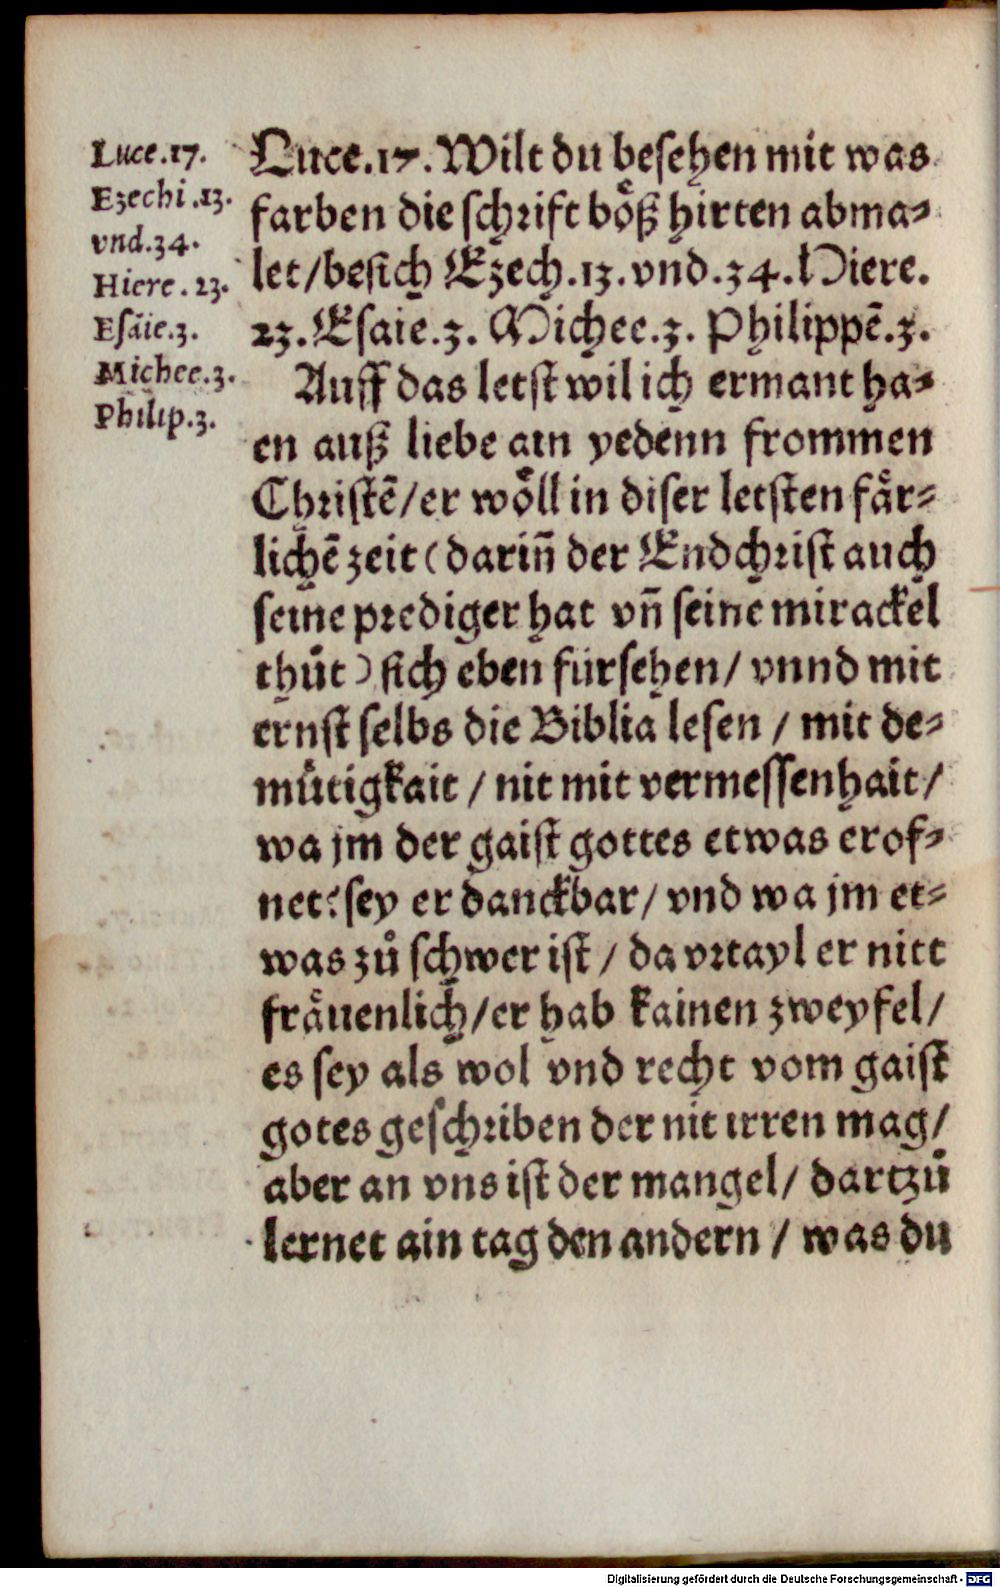 Luce.17.
Ezechi.13.
vnd.34.
Hiere.23.
Esaie.3.
Michee.3.
Philip.3.
Luce.17. Wilt du besehen mit was
farben die schrift boͤß hirten abma⸗
let/besich Ezech.13.vnd.34.Hiere.
23.Esaie.3. Michee.3. Philippē.3.
Auff das letst wil ich ermant ha⸗
en auß liebe ain yedenn frommen
Christē/er woͤll in diser letsten faͤr⸗
lichē zeit (dariñ der Endchrist auch
seine prediger hat vñ seine mirackel
thuͤt) sich eben fürsehen/ vnnd mit
ernst selbs die Biblia lesen / mit de⸗
muͤtigkait / nit mit vermessenhait/
wa jm der gaist gottes etwas erof⸗
net: sey er danckbar/ vnd wa jm et⸗
was zuͦ schwer ist / da vrtayl er nitt
fraͤuenlich/er hab kainen zweyfel/
es sey als wol vnd recht vom gaist
gotes geschriben der nit irren mag/
aber an vns ist der mangel/ dartzuͦ
lernet ain tag den andern / was du
Digitalisierung gefördert durch die Deutsche Forschungsgemeinschaft - DFG